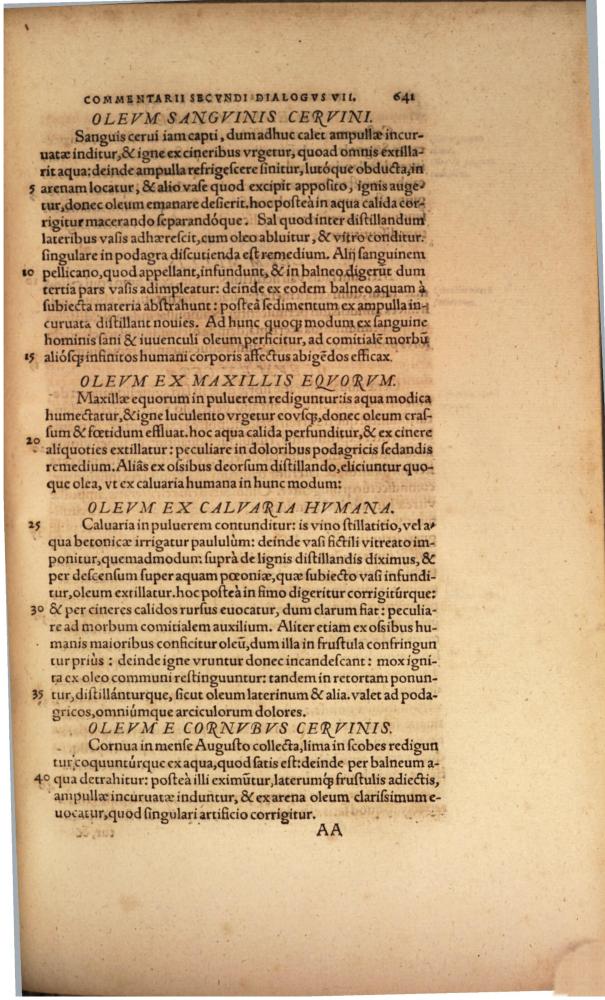 COMMENTARII SECVNDI DIALOGVS VII. 641
OLEVM SANGVINIS CERVINI.
Sanguis cerui iam capti, dum adhuc calet ampullæ incur-
uatæ inditur, & igne ex cineribus vrgetur, quoad omnis extilla-
rit aqua: deinde ampulla refrigeſcere ſinitur, lutóque obducta, in
5 arenam locatur, & alio vaſe quod excipit appoſito, ignis auge-
tur, donec oleum emanare deſierit. hoc poſtea in aqua calida cor-
rigitur macerando ſeparandóque. Sal quod inter diſtillandum
lateribus vaſis adhæreſcit, cum oleo abluitur, & vitro conditur.
ſingulare in podagra diſcutienda eſt remedium. Alij ſanguinem
10 pellicano, quod appellant, infundunt, & in balneo digerūt dum
tertia pars vaſis adimpleatur: deinde ex eodem balneo aquam à
ſubiecta materia abſtrahunt: poſteà ſedimentum ex ampulla in-
curuata diſtillant nouies. Ad hunc quoqꝫ modum ex ſanguine
hominis ſani & iuuenculi oleum perficitur, ad comitialē morbū
15 alióſqꝫ infinitos humani corporis affectus abigēdos efficax.
OLEVM EX MAXILLIS EQVORVM.
Maxillæ equorum in puluerem rediguntur: is aqua modica
humectatur, & igne luculento vrgetur eovſqꝫ, donec oleum craſ-
ſum & fœtidum effluat. hoc aqua calida perfunditur, & ex cinere
20 aliquoties extillatur: peculiare in doloribus podagricis ſedandis
remedium. Aliâs ex oſsibus deorſum diſtillando, eliciuntur quo-
que olea, vt ex caluaria humana in hunc modum:
OLEVM EX CALVARIA HVMANA.
25 Caluaria in puluerem contunditur: is vino ſtillatitio, vel a-
qua betonicæ irrigatur paululùm: deinde vaſi fictili vitreato im-
ponitur, quemadmodum ſuprà de lignis diſtillandis diximus, &
per deſcenſum ſuper aquam pœoniæ, quæ ſubiecto vaſi infundi-
tur, oleum extillatur. hoc poſteà in fimo digeritur corrigitúrque:
30 & per cineres calidos rurſus euocatur, dum clarum fiat: peculia-
re ad morbum comitialem auxilium. Aliter etiam ex oſsibus hu-
manis maioribus conficitur oleū, dum illa in fruſtula confringun
tur priùs: deinde igne vruntur donec incandeſcant: mox igni-
ta ex oleo communi reſtinguuntur: tandem in retortam ponun-
35 tur, diſtillánturque, ſicut oleum laterinum & alia. valet ad poda-
gricos, omniúmque arciculorum dolores.
OLEVM E CORNVBVS CERVINIS.
Cornua in menſe Auguſto collecta, lima in ſcobes redigun
tur coquuntúrque ex aqua, quod ſatis eſt: deinde per balneum a-
40 qua detrahitur: poſteà illi eximūtur, laterumqꝫ fruſtulis adiectis,
ampullæ incuruatæ induntur, & ex arena oleum clariſsimum e-
uocatur, quod ſingulari artificio corrigitur.
AA